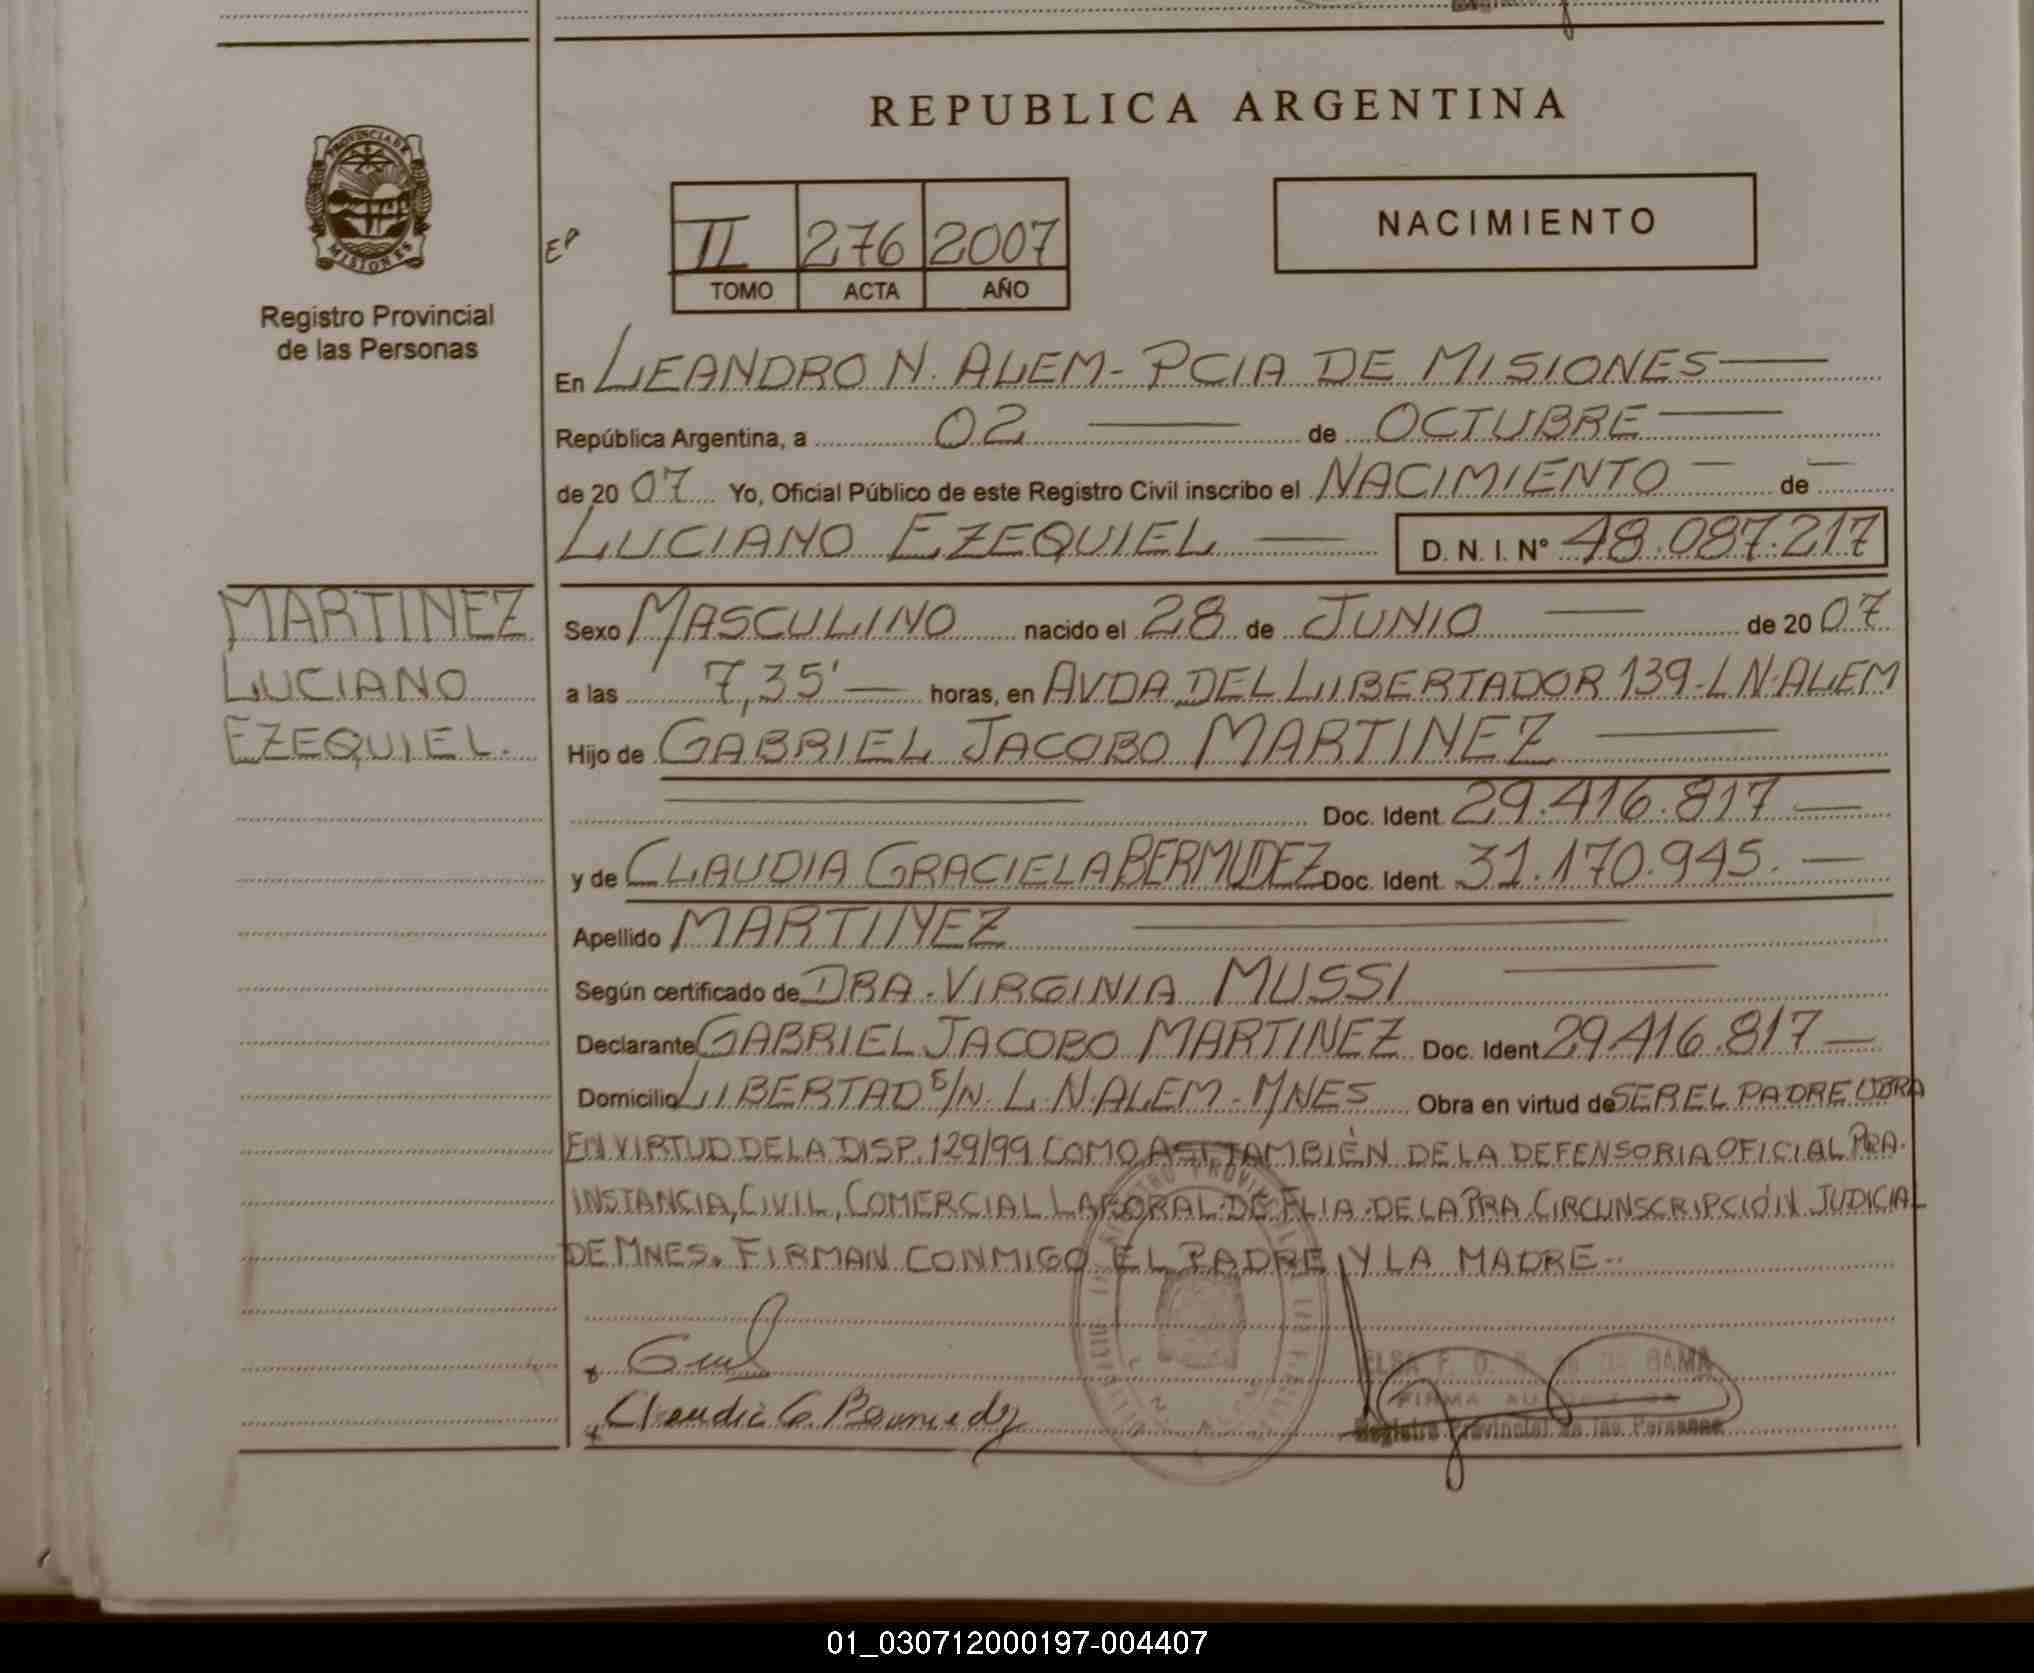 REPUBLICA ARGENTINA
PROVINCIA DE
MISIONES
Registro Provincial
de las Personas
EP
II 276 2007
TOMO ACTA AÑO
NACIMIENTO
En LEANDRO N. ALEM - PCIA DE MISIONES
República Argentina, a 02 de OCTUBRE
de 20 07 Yo, Oficial Público de este Registro Civil inscribo el NACIMIENTO de
LUCIANO EZEQUIEL D. N. I. Nº 48.087.217
MARTINEZ
LUCIANO
EZEQUIEL.
Sexo MASCULINO nacido el 28 de JUNIO de 20 07
a las 7,35' horas, en AVDA DEL LIBERTADOR 139 - L N. ALEM
Hijo de GABRIEL JACOBO MARTINEZ
Doc. Ident. 29.416.817
y de CLAUDIA GRACIELA BERMUDEZ Doc. Ident. 31.170.945.
Apellido MARTINEZ
Según certificado de DRA. VIRGINIA MUSSI
Declarante GABRIEL JACOBO MARTINEZ Doc. Ident 29.416.817
Domicilio LIBERTAD S/N. L. N. ALEM - MNES Obra en virtud de SER EL PADRE OBRA
EN VIRTUD DE LA DISP. 129/99 COMO ASI TAMBIÉN DE LA DEFENSORIA OFICIAL PRA.
INSTANCIA, CIVIL, COMERCIAL LABORAL DE FLIA. DE LA PRA CIRCUNSCRIPCIÓN JUDICIAL
DE MNES. FIRMAN CONMIGO EL PADRE Y LA MADRE..
Claudia G. Bermudez
ELSA F. D. GAMA
FIRMA
Registro Provincial de las Personas
01_030712000197-004407